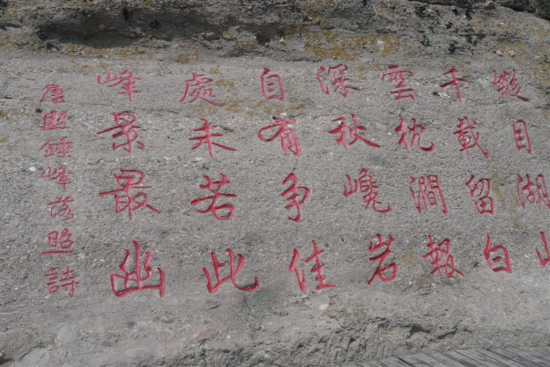 縱目湖山
千載留白
雲枕澗報
深秋巉岩
自有争佳
處未若此
峰景最幽
康熙錘峰落照詩